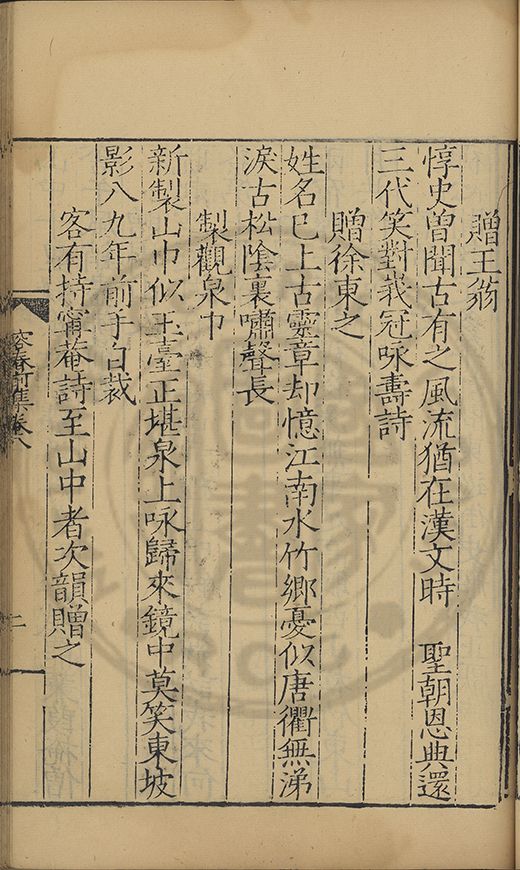 贈王翁
惇史曾聞古有之風流猶在漢文時　聖朝恩典還
三代笑對峩冠咏壽詩
贈徐東之
姓名巳上古靈章却憶江南水竹鄉憂似唐衢無涕
淚古松陰裏嘯聲長
製觀泉巾
新製山巾似玉臺正堪泉上咏歸來鏡中莫笑東坡
影八九年前手白裁
客有持寗菴詩至山中者次韻贈之
容春前集卷八
二